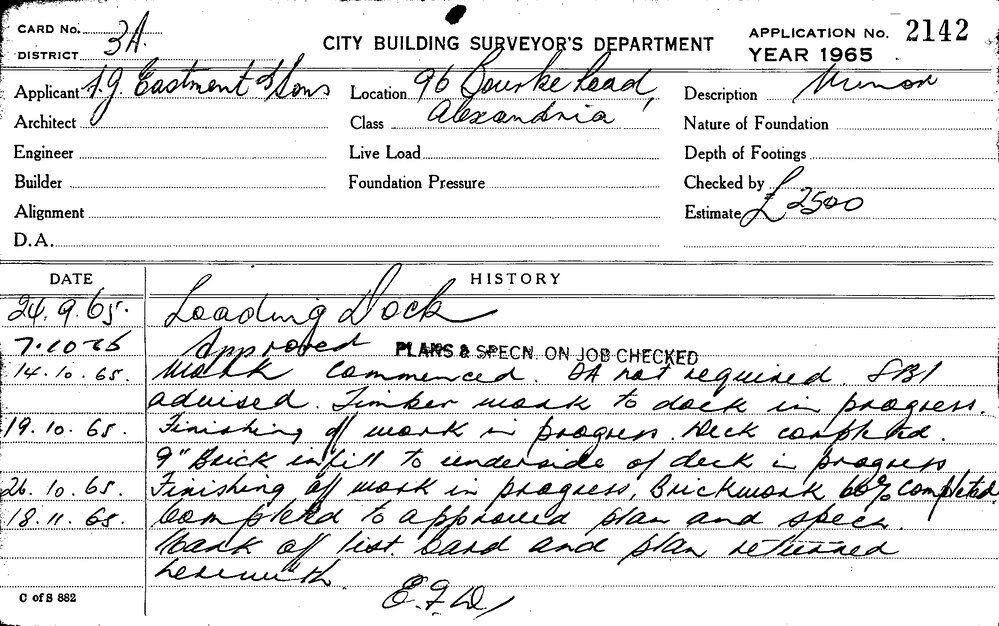 CARD No.
DISTRICT 3A.
CITY BUILDING SURVEYOR'S DEPARTMENT
APPLICATION No. 2142
YEAR 1965
Applicant F. J. Eastment & Sons
Location 96 Bourke Road,
Description Minor
Architect
Class Alexandria
Nature of Foundation
Engineer
Live Load
Depth of Footings
Builder
Foundation Pressure
Checked by
Alignment
Estimate £ 2500
D.A.
DATE
HISTORY
24.9.65. Loading Dock
7.10.65 Approved PLANS & SPECN. ON JOB CHECKED
14.10.65. Work commenced. DA not required. SBI
advised. Timber work to dock in progress.
19.10.65. Finishing off work in progress. Deck completed.
9" Brick infill to underside of deck in progress
26.10.65. Finishing off work in progress, Brickwork 60% completed.
18.11.65. Completed to approved plan and specn.
Mark off list. Card and plan returned
herewith.
E.F.W.
C of S 882